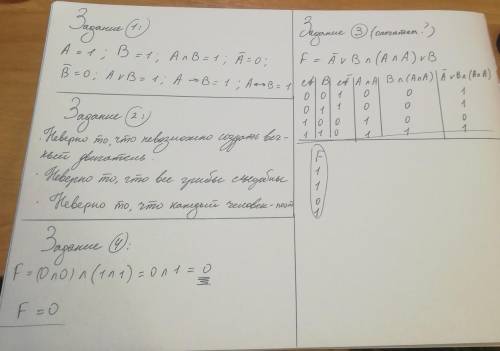 Задание 1:
A = 1 ; B = 1 ; A ∧ B = 1 ; A̅ = 0 ;
B̅ = 0 ; A ∨ B = 1 ; A → B = 1 ; A ↔ B = 1
Задание 2:
· Неверно то, что невозможно создать веч-
ный двигатель.
· Неверно то, что все грибы съедобны
· Неверно то, что каждый человек - поэт
Задание 4:
F = (0 ∧ 0) ∧ (1 ∧ 1) = 0 ∧ 1 = 0
F = 0
Задание 3 (опечатка?)
F = A̅ ∨ B ∧ (A ∧ A) ∨ B
A B A̅ A ∧ A B ∧ (A ∧ A) A̅ ∨ B ∧ (A ∧ A)
0 0 1 0 0 1
0 1 1 0 0 1
1 0 0 1 0 0
1 1 0 1 1 1
F
1
1
0
1